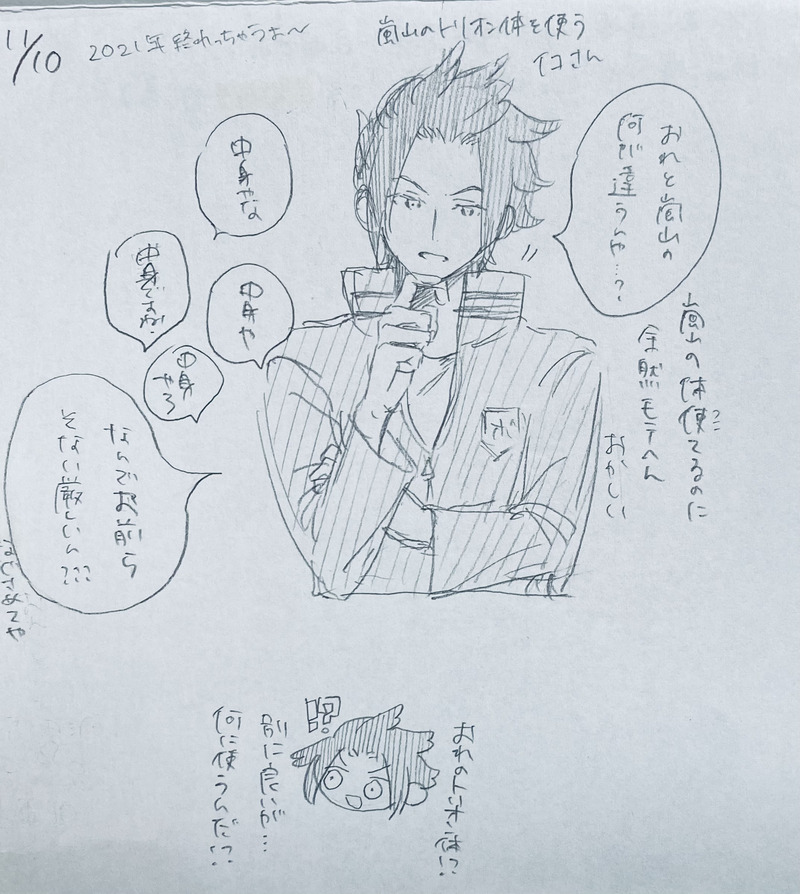 11/10
2021年終わっちゃうぉ〜
嵐山のトリオン体を使う
イコさん
おれと嵐山の
何が違うんや…?
嵐山の体使てるのに
全然モテへん
おかしい
中身やな
中身や
中身ですね。
中身
やろ
なんでお前ら
そない厳しいん???
なぐさめてや
ボ
おれのトリオン体!?
!?
別に良いが…
何に使うんだ!?